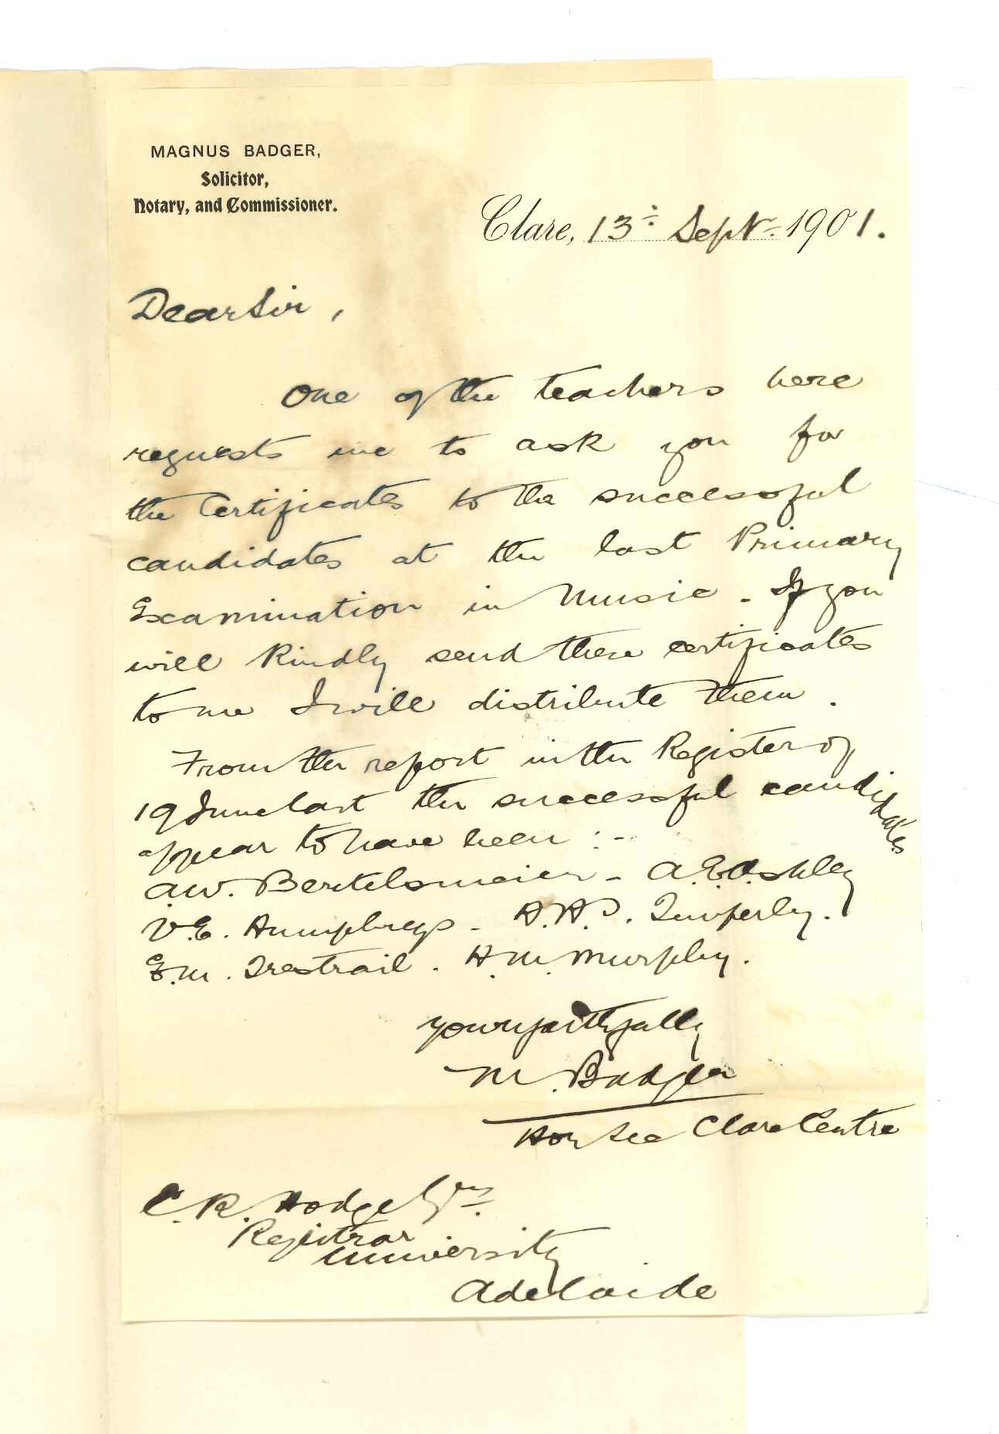 MAGNUS BADGER,
Solicitor,
Notary, and Commissioner.
Clare, 13th Sept. 1901.
Dear Sir,
One of the teachers here
requests me to ask you for
the Certificates to the successful
candidates at the last Primary
Examination in Music. If you
will kindly send these certificates
to me I will distribute them.
From the report in the Register of
19 June last the successful candidates
appear to have been :-
A.W. Bertelsmeier - A.E. Ashley
V.E. Humphreys - Timperley.
E.M. Trestrail. H.M. Murphy.
Yours faithfully
M. Badger
Hon Sec Clare Centre
C.R. Hodge
Registrar
University
Adelaide